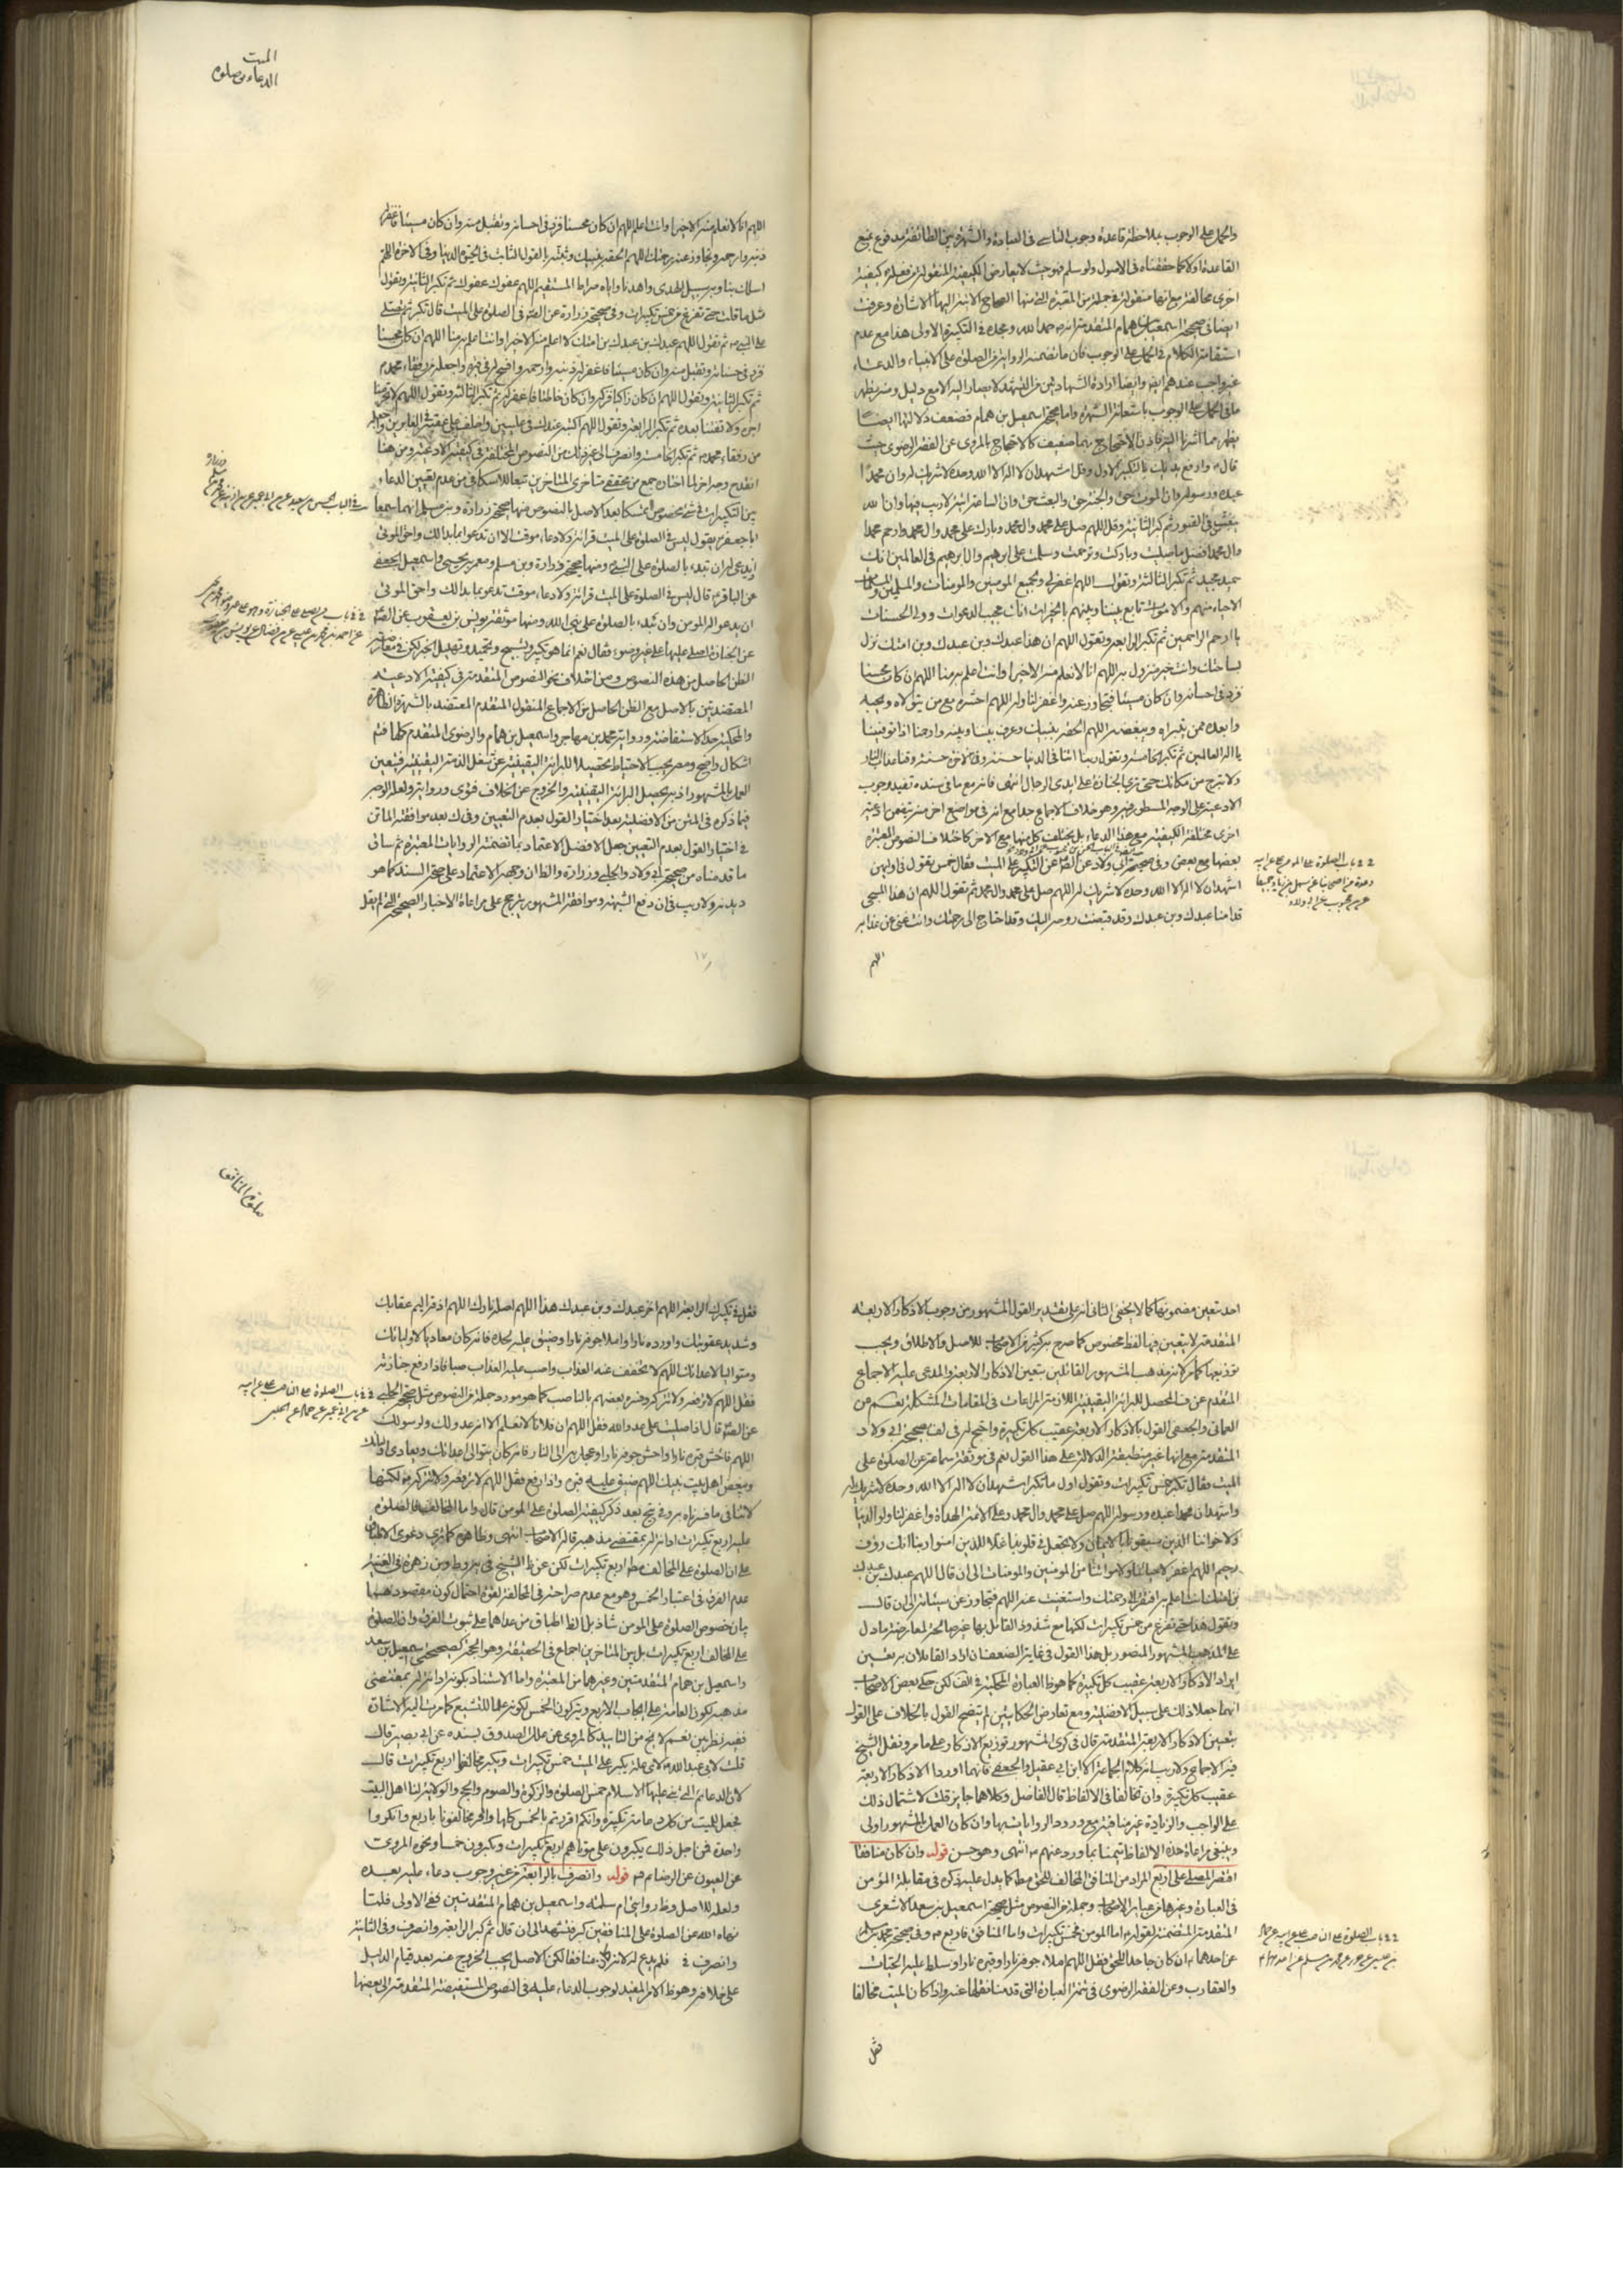 والحمل على الوجوب بملاحظة قاعدة وجوب التاسي في العبادة والشهرة بين الطائفة مدفوع بمنع
القاعدة اولا كما حققناه في الاصول ولو سلم فهو حيث لا يعارض الكيفية المنقولة من فعله كيفية
اخرى مخالفة مع انها منقولة في جملة من المعتبرة التي منها الصحاح الاتية اليها الاشارة وعرفت
ايضا في صحيحة اسمعيل بن همام المتقدمة انه حمد الله ومجده في التكبيرة الاولى هذا مع عدم
استقامة الكلام في الحمل على الوجوب فان ما تضمنته الرواية من الصلوة على الانبياء والدعاء
غير واجب عندهم ايضا وايضا ارادة الشهادتين من التشهد لا يصار اليه الا مع دليل ومنه يظهر
ما في الحمل على الوجوب باستعانة الشهرة واما صحيحة اسمعيل بن همام فضعف دلالتها ايضا
يظهر مما اشرنا اليه فاذن الاحتجاج بهما ضعيف كالاحتجاج بالمروي عن الفقه الرضوي حيث
قال وارفع يديك بالتكبير الاول وقل اشهد ان لا اله الا الله وحده لا شريك له وان محمدا
عبده ورسوله وان الموت حق والجنة حق والبعث حق وان الساعة اتية لا ريب فيها وان الله
يبعث من في القبور ثم كبر الثانية وقل اللهم صل على محمد وال محمد وبارك على محمد وال محمد وارحم محمدا
وال محمد افضل ما صليت وباركت وترحمت وسلمت على ابرهيم وال ابرهيم في العالمين انك
حميد مجيد ثم تكبر الثالثة وتقول اللهم اغفر لي ولجميع المومنين والمومنات والمسلمين والمسلمات
الاحياء منهم والاموات تابع بيننا وبينهم بالخيرات انك مجيب الدعوات وولي الحسنات
يا ارحم الراحمين ثم تكبر الرابعة وتقول اللهم ان هذا عبدك وبن عبدك وبن امتك نزل
بساحتك وانت خير منزول به اللهم انا لا نعلم منه الا خيرا وانت اعلم به منا اللهم ان كان محسنا
فزد في احسانه وان كان مسيئا فتجاوز عنه واغفر لنا وله اللهم احشره مع من يتولاه ويحبه
وابعده ممن يتبراه ويبغضه اللهم الحقه بنبيك وعرف بينه وبينه وارحمنا اذا توفيتنا
يا اله العالمين ثم تكبر الخامسة وتقول ربنا اتنا في الدنيا حسنة وفي الاخرة حسنة وقنا عذاب النار
ولا تبرح من مكانك حتى ترى الجنازة على ايدي الرجال انتهى فانه مع ما في سنده تفيد وجوب
الادعية على الوجه المسطور فيه وهو خلاف الاجماع جدا مع انه في مواضع اخر منه تضمن ادعية
اخرى مختلفة الكيفية مع هذا الدعاء بل يختلف كل منها مع الاخر كاختلاف النصوص المعتبرة
بعضها مع بعض وفي صحيحة ابي ولاد عن الص عن التكبير على الميت فقال خمس يقول في اوليهن
اشهد ان لا اله الا الله وحده لا شريك له اللهم صل على محمد وال محمد ثم تقول اللهم ان هذا المسجى
قدامنا عبدك وبن عبدك وقد قبضت روحه اليك وقد احتاج الى رحمتك وانت غني عن عذابه
اللهم
الميت
الدعاء في صلوة
اللهم انا لا نعلم منه الا خيرا وانت اعلم اللهم ان كان محسنا فزد في احسانه وتقبل منه وان كان مسيئا فاغفر له
ذنبه وارحمه وتجاوز عنه برحمتك اللهم الحقه بنبيك وثبته بالقول الثابت في الحيوة الدنيا وفي الاخرة اللهم
اسلك بنا وبه سبيل الهدى واهدنا واياه صراط المستقيم اللهم عفوك عفوك ثم تكبر الثانية وتقول
مثل ما قلت حتى تفرغ من خمس تكبيرات وفي صحيحة زرارة عن الص في الصلوة على الميت قال تكبر ثم تصلي
على النبي ثم تقول اللهم عبدك بن عبدك بن امتك لا اعلم منه الا خيرا وانت اعلم به منا اللهم ان كان محسنا
فزد في حسناته وتقبل منه وان كان مسيئا فاغفر له ذنبه وارحمه وافسح له في قبره واجعله من رفقاء محمد
ثم تكبر الثانية وتقول اللهم ان كان زاكيا فزكه وان كان خاطئا فاغفر له ثم تكبر الثالثة وتقول اللهم لا تحرمنا
اجره ولا تفتنا بعده ثم تكبر الرابعة وتقول اللهم اكتبه عندك في عليين واخلف على عقبه في الغابرين واجعله
من رفقاء محمد ثم تكبر الخامسة وانصرف الى غير ذلك من النصوص المختلفة في كيفية الادعية ومن هنا
انقدح وجه اخر لما اختاره جمع من محققي متاخري المتاخرين تبعا للاسكافي من عدم تعيين الدعاء
بين التكبيرات في شيء مخصوص تمسكا بعد الاصل بالنصوص منها صحيحة زرارة وبن مسلم انهما سمعا
ابا جعفر يقول ليس في الصلوة على الميت قرائة ولا دعاء موقت الا ان تدعو بما بدالك واحق الموتى
ان يدعى له ان تبدء بالصلوة على النبي ومنها صحيحة زرارة وبن مسلم ومعمر بن يحيى واسمعيل الجعفي
عن الباقر قال ليس في الصلوة على الميت قرائة ولا دعاء موقت تدعو بما بدالك واحق الموتى
ان يدعو اله المومن وان تبدء بالصلوة على نبي الله ومنها موثقة يونس بن يعقوب عن الص
عن الجنازة اصلى عليها على غير وضوء فقال نعم انما هو تكبير وتسبيح وتحميد وتهليل الخبر لكن في معارضته
الظن الحاصل من هذه النصوص ومن اختلاف نحو النصوص المتقدمة في كيفية الادعية
المعتضدتين بالاصل مع الظن الحاصل من الاجماع المنقول المتقدم المعتضد بالشهرة الظاهرة
والمحكية حد الاستفاضة ورواية محمد بن مهاجر واسمعيل بن همام والرضوي المتقدم كلها فتم
اشكال واضح ومعه يجب الاحتياط تحصيلا للبرائة اليقينية عن شغل الذمة اليقينية فيتعين
العمل بالمشهور اذ به يحصل البرائة اليقينية والخروج عن الخلاف فتوى ورواية ولعله الوجه
فيما ذكره في المتن من الافضلية بعد اختيار القول بعدم التعيين وفي ك بعد موافقة الماتن
في اختيار القول بعدم التعيين جعل الافضل الاعتماد بما تضمنته الروايات المعتبرة ثم ساق
ما قدمناه من صحيحة ابي ولاد والحلبي وزرارة والظ ان وجهه الاعتماد على صحة السند كما هو
ديدنه ولا ريب في ان دفع الشبهة وموافقة المشهور يترجح على مراعاة الاخبار الصحيحة التي لم يقل
احد بتعين مضمونها كما لا يخفى الثاني انه على تقدير القول المشهور من وجوب الاذكار الاربعة
المتقدمة لا يتعين فيها لفظ مخصوص كما صرح به كثير من الاصحاب للاصل والاطلاق ويجب
توزيعها كما مر لانه مذهب المشهور القائلين بتعين الاذكار الاربعة والمدعى عليه الاجماع
المتقدم عن ف المحصل للبرائة اليقينية اللازمة المراعات في المقامات المشكلة نعم عن
العماني والجعفي القول بالاذكار الاربعة عقيب كل تكبيرة واحتج له في لف بصحيحة ابي ولاد
المتقدمة مع انها غير منطبقة الدلالة على هذا القول نعم في موثقة سماعة عن الصلوة على
الميت فقال تكبر خمس تكبيرات وتقول اول ما تكبر اشهد ان لا اله الا الله وحده لا شريك له
واشهد ان محمدا عبده ورسوله اللهم صل على محمد وال محمد وعلى الائمة الهداة واغفر لنا
ولاخواننا الذين سبقونا بالايمان ولا تجعل في قلوبنا غلا للذين امنوا ربنا انك رؤف
رحيم اللهم اغفر لاحيائنا ولامواتنا من المومنين والمومنات الى ان قال اللهم عبدك بن عبدك
بن امتك انت اعلم به افتقر الى رحمتك واستغنيت عنه اللهم فتجاوز عن سيئاته الى ان قال
وتقول هذا حتى تفرغ من خمس تكبيرات لكنها مع شذوذ القائل بها غير صالحة لمعارضة ما دل
على المذهب المشهور المنصور بل هذا القول في غاية الضعف ان اراد القائلان به تعين
ايراد الاذكار الاربعة عقيب كل تكبيرة كما هو ظ العبارة المحكية في لف لكن حكى بعض الاصحاب
انهما جعلا ذلك على سبيل الافضلية ومع تعارض الحكايتين لم يتضح القول بالخلاف على القول
بتعين الاذكار الاربعة المتقدمة قال في كرى المشهور توزيع الاذكار على ما مر ونقل الشيخ
فيه الاجماع ولا ريب انه كلام الجماعة الا ابن ابي عقيل والجعفي فانهما اوردا الاذكار الاربعة
عقيب كل تكبيرة وان تخالفا في الالفاظ قال الفاضل وكلاهما جايز قلت لاشتمال ذلك
على الواجب والزيادة غير منافية مع ورود الروايات بها وان كان العمل بالمشهور اولى
وينبغي مراعاة هذه الالفاظ تيمنا بما ورد عنهم انتهى وهو حسن قوله وان كان منافقا
اقتصر المصلى على اربع المراد من المنافق المخالف للحق مط كما يدل عليه ذكره في مقابلة المؤمن
في العبارة وغيرها من عباير الاصحاب وجملة من النصوص مثل صحيحة اسمعيل بن سعد الاشعري
المتقدمة المتضمنة لقوله اما المومن فخمس تكبيرات واما المنافق فاربع وفي صحيحة محمد بن مسلم
عن احدهما ان كان جاحدا للحق فقل اللهم املاء جوفه نارا وقبره نارا وسلط عليه الحيات
والعقارب وعن الفقه الرضوي في تتمة العبارة التي قدمنا نقلها عنه واذا كان الميت مخالفا
فقل
صلوة المنافق
فقل في تكبيرك الرابعة اللهم اخز عبدك وبن عبدك هذا اللهم اصله نارك اللهم اذقه اليم عقابك
وشديد عقوبتك واورده نارا واملا جوفه نارا وضيق عليه لحده فانه كان معاديا لاوليائك
ومتواليا لاعدائك اللهم لا تخفف عنه العذاب واصب عليه العذاب صبا فاذا رفع جنازته
فقل اللهم لا ترفعه ولا تزكه وفسره بعضهم بالناصب كما هو مورد جملة من النصوص مثل صحيحة الحلبي
عن الص قال اذا صليت على عدو الله فقل اللهم ان فلانا لا نعلم الا انه عدو لك ولرسولك
اللهم فاحش قبره نارا واحش جوفه نارا وعجل به الى النار فانه كان يتوالى اعدائك ويعادى اوليائك
ويبغض اهل بيت نبيك اللهم ضيق عليه قبره واذا رفع فقل اللهم لا ترفعه ولا تزكه لكنها
لا تنافي ما فسرناه به وفي نتح بعد ذكر كيفية الصلوة على المومن قال واما المخالف فالصلوة
عليه اربع تكبيرات الزاما له بمقتضى مذهبه قاله الاصحاب انتهى وظاهره كما ترى دعوى الاتفاق
على ان الصلوة على المخالف مط اربع تكبيرات لكن عن ظ الشيخ في يه وط وبن زهرة في الغنية
عدم الفرق في اعتبار الخمس وهو مع عدم صراحته في المخالفة لقوة احتمال كون مقصودهما
بيان خصوص الصلوة على المومن شاذ بل الظ اطباق من عداهما على ثبوت الفرق وان الصلوة
على المخالف اربع تكبيرات بل بين المتاخرين اجماع في الحقيقة وهو الحجة كصحيحتي اسمعيل بن سعد
واسمعيل بن همام المتقدمتين وغيرهما من المعتبرة واما الاستناد بكونه الزاما له بمقتضى
مذهبه لكون العامة على ايجاب الاربع ويتركون الخمس لكونه علما للتشيع كما مرت اليه الاشارة
ففيه نظر بين نعم لا يخ من التاييد كالمروي عن علل الصدوق بسنده عن ابي بصير قال
قلت لابي عبد الله لاي علة يكبر على الميت خمس تكبيرات ويكبر مخالفوا اربع تكبيرات قال
لان الدعائم التي بني عليها الاسلام خمس الصلوة والزكوة والصوم والحج والولاية لنا اهل البيت
فجعل للميت من كل دعامة تكبيرة وانكم اقررتم بالخمس كلها واقر مخالفونا باربع وانكروا
واحدة فمن اجل ذلك يكبرون على موتاهم اربع تكبيرات وتكبرون خمسا ونحوه المروي
عن العيون عن الرضا قوله وانصرف بالرابعة من غير وجوب دعاء عليه بعده
ولعله للاصل وظ روايتي ام سلمة واسمعيل بن همام المتقدمتين ففي الاولى فلما
نهاه الله عن الصلوة على المنافقين كبر فتشهد الى ان قال ثم كبر الرابعة وانصرف وفي الثانية
وانصرف في فلم يدع له لانه كان منافقا لكن الاصل يجب الخروج عنه بعد قيام الدليل
على خلافه وهو ظ الامر المفيد لوجوب الدعاء عليه في النصوص المستفيضة المتقدمة الى بعضها